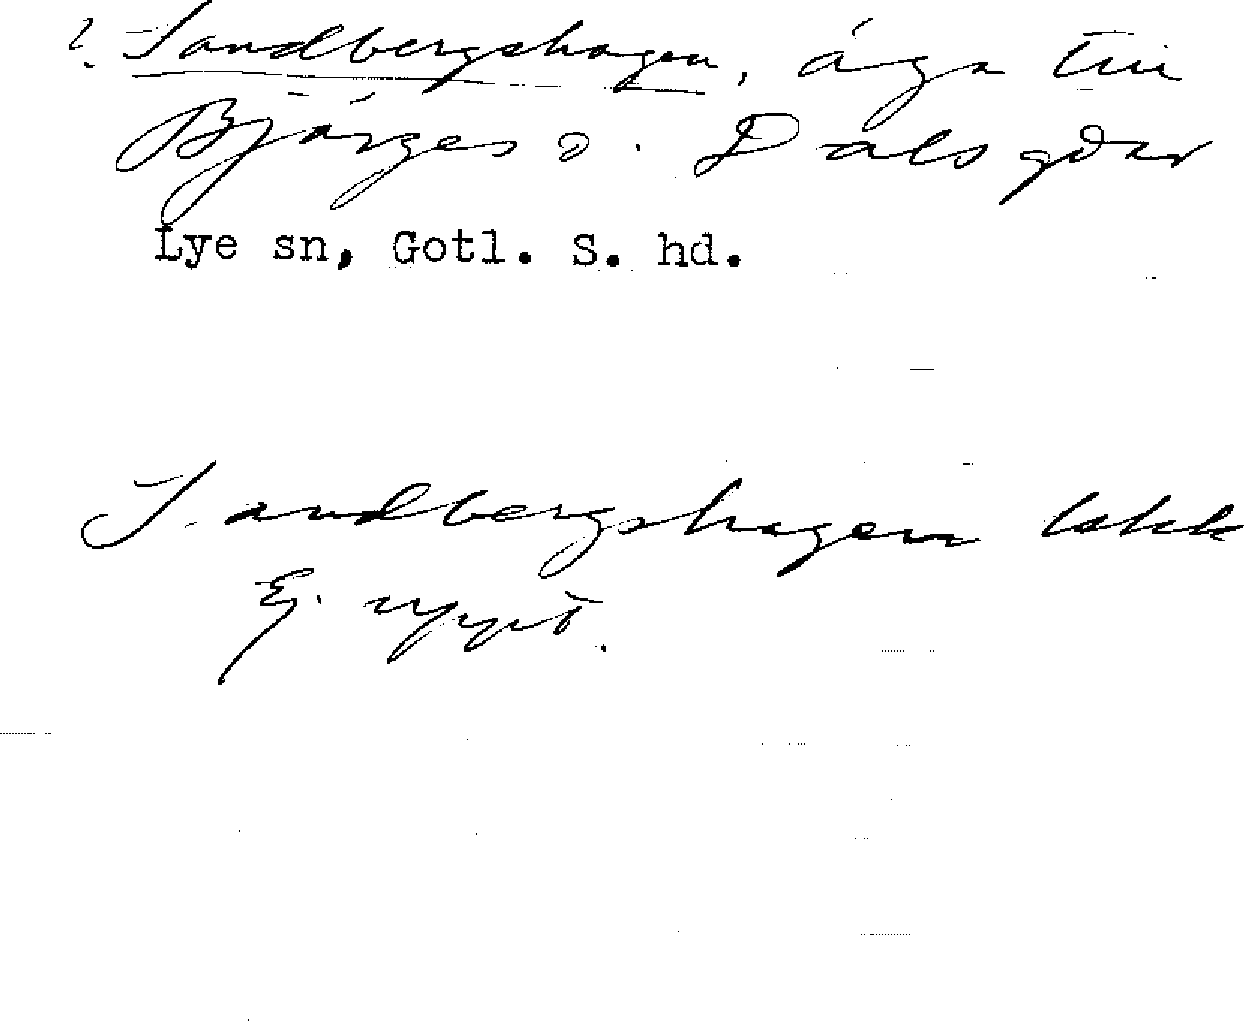 ? Sandbergshagen, äga till
Bjärges o. Dals gdar
Lye sn, Gotl. S. hd.
Sandbergshagen lskk
Ej uppt.